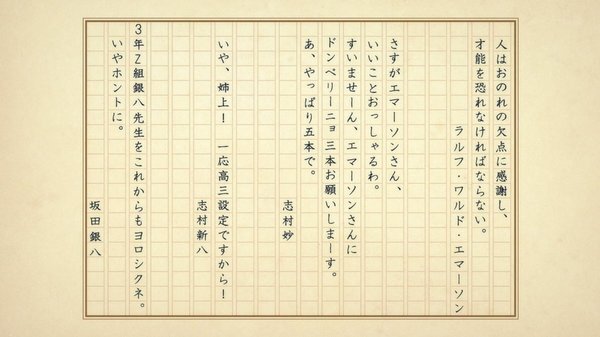 人はおのれの欠点に感謝し、
才能を恐れなければならない。
ラルフ・ワルド・エマーソン
さすがエマーソンさん、
いいことおっしゃるわ。
すいませーん、エマーソンさんに
ドンペリーニョ三本お願いしまーす。
あ、やっぱり五本で。
志村妙
いや、姉上！　一応高三設定ですから！
志村新八
３年Ｚ組銀八先生をこれからもヨロシクネ。
いやホントに。
坂田銀八